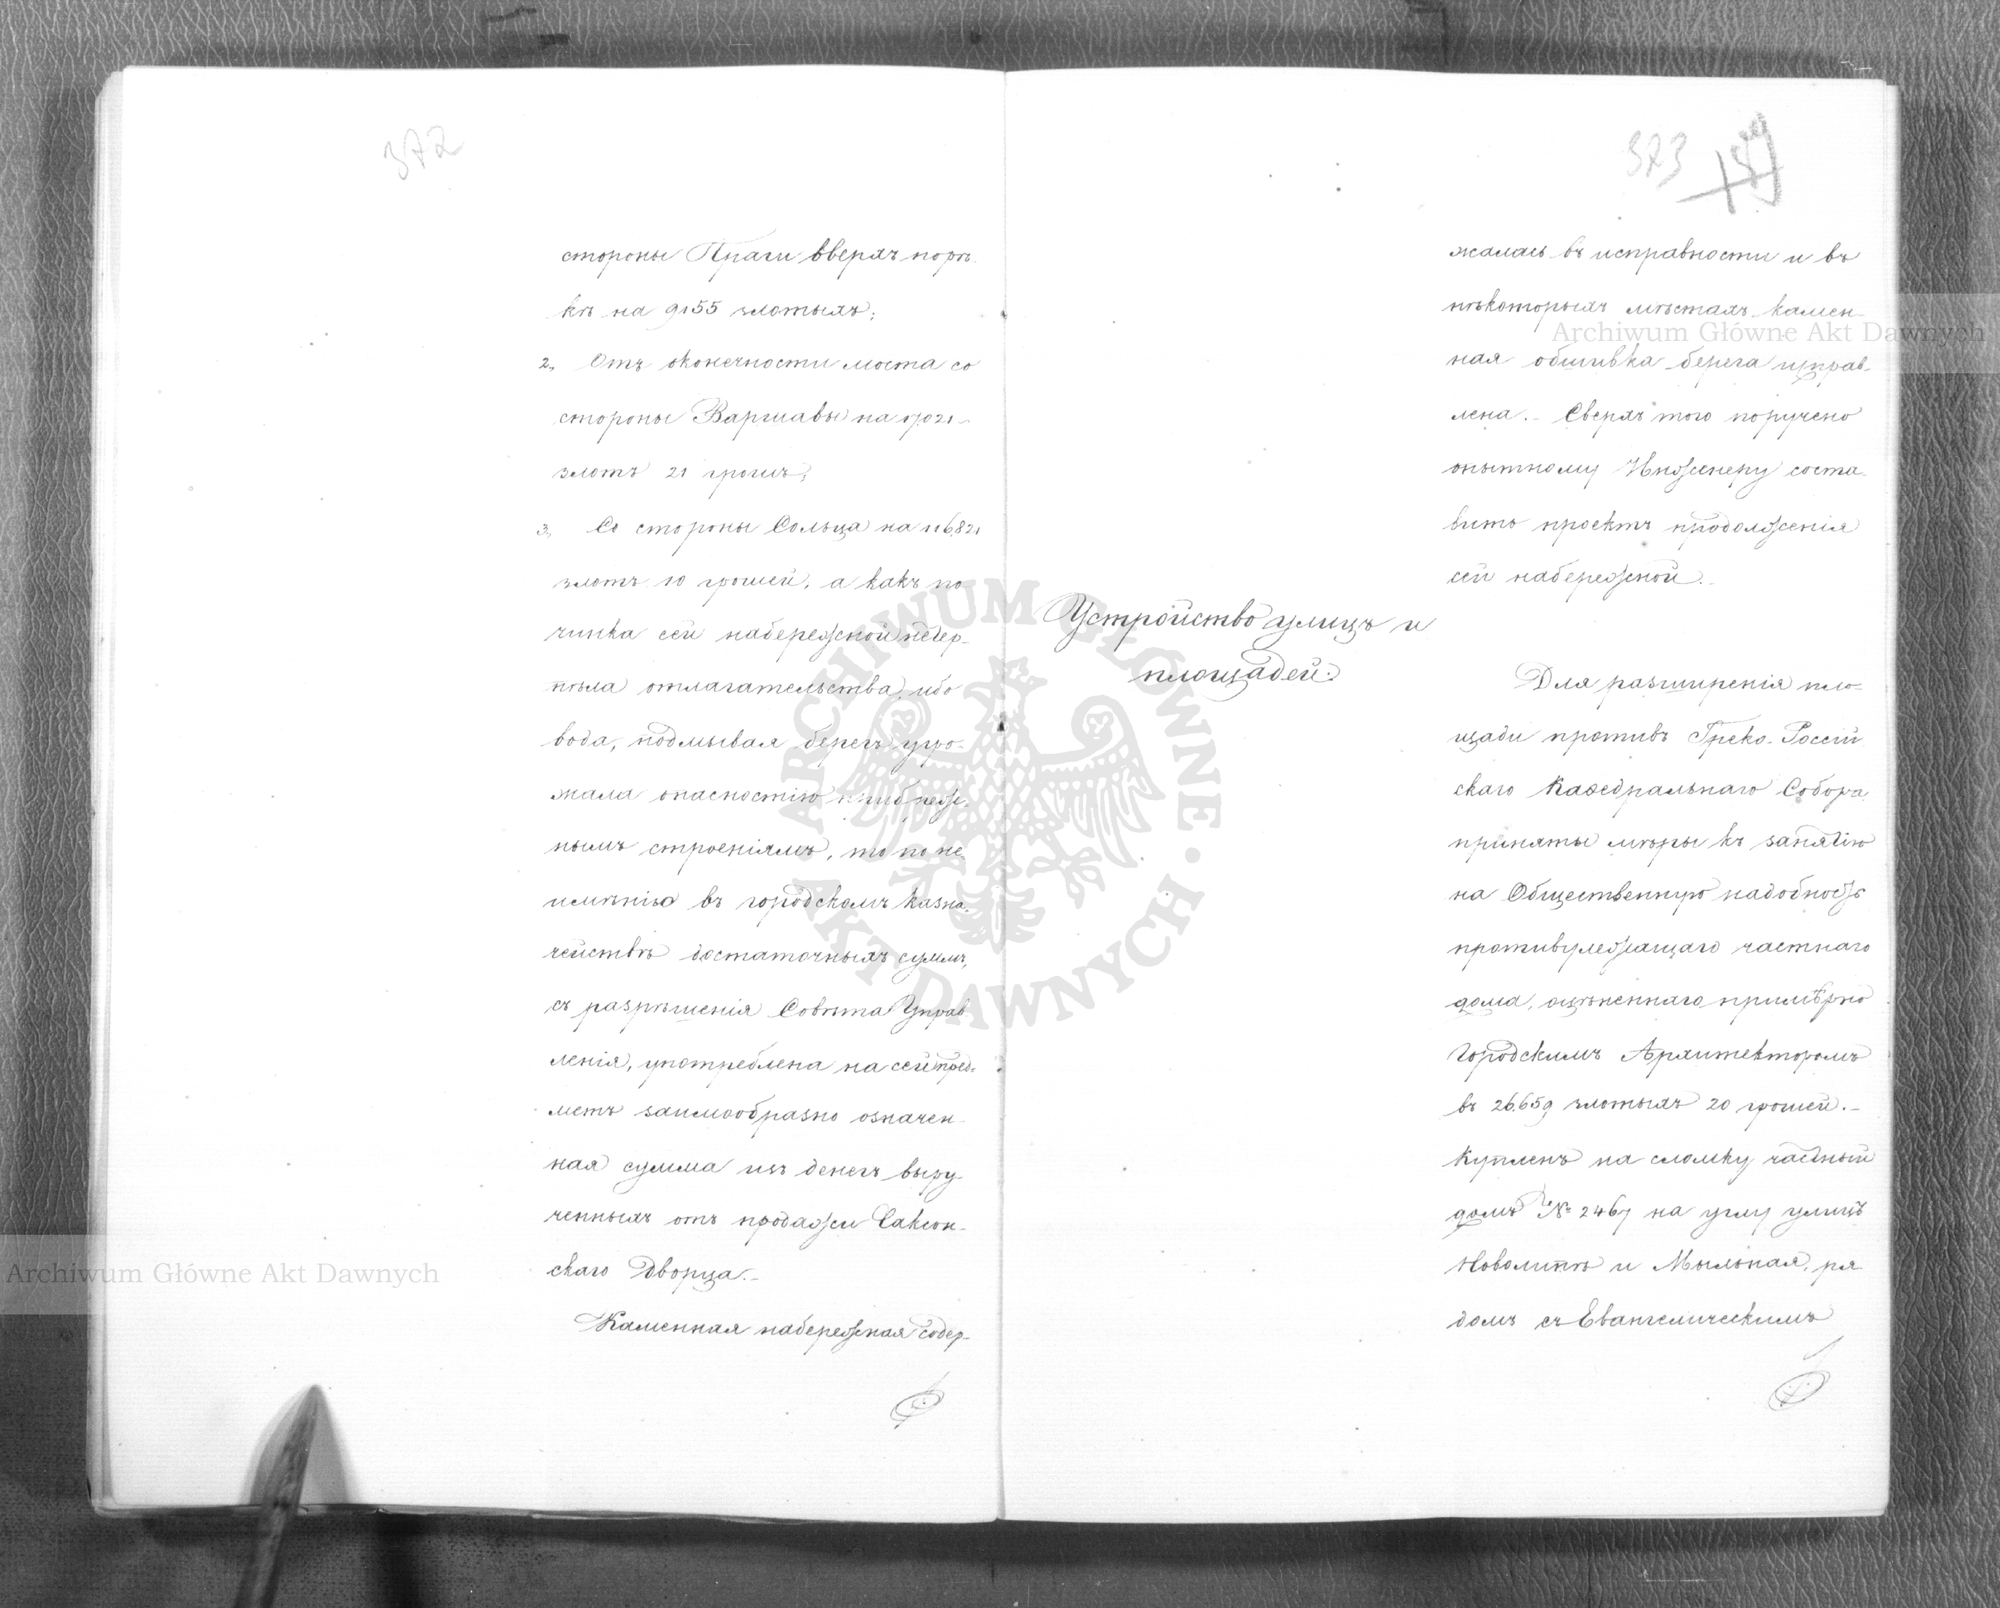 372
стороны Праги вверхъ по рѣ-
кѣ на 9155 злотыхъ;
2, Отъ оконечности моста со
стороны Варшавы на
злотъ 21 грошъ;
3, Со стороны Сольца на 116,821
злотъ 10 грошей, а какъ по
чинка сей набережной нетер-
пѣла отлагательства, ибо
вода, подмывая берегъ угро-
жала опасностію прибреж-
нымъ строеніямъ, то по не-
имѣнію въ городскомъ казна-
чействѣ достаточныхъ суммъ,
съ разрѣшенія Совѣта Управ
ленія, употреблена на сей пред-
метъ заимообразно означен-
ная сумма изъ денегъ выру-
ченныхъ отъ продажи Саксон-
скаго Дворца.-
Каменная набережная содер-
373
Устройство улицъ и
площадей.
жалась въ исправности и въ
нѣкоторыхъ мѣстахъ камен-
ная обшивка берега исправ-
лена.- Сверхъ того поручено
опытному Инженеру соста-
вить проектъ продолженія
сей набережной.-
Для разширенія пло-
щади противъ Греко-Россій
скаго Каѳедральнаго Собора
приняты мѣры къ занятію
на Общественную надобность
противулежащаго частнаго
дома, оцѣненнаго примѣрно
Городскимъ Архитекторомъ
въ 26,659 злотыхъ 20 грошей.-
Купленъ на сломку частный
домъ № 2467 на углу улицъ
Новолипѣ и Мыльная, ря
домъ съ Евангелическимъ
Archiwum Główne Akt Dawnych
Archiwum Główne Akt Dawnych
ARCHIWUM GŁÓWNE AKT DAWNYCH